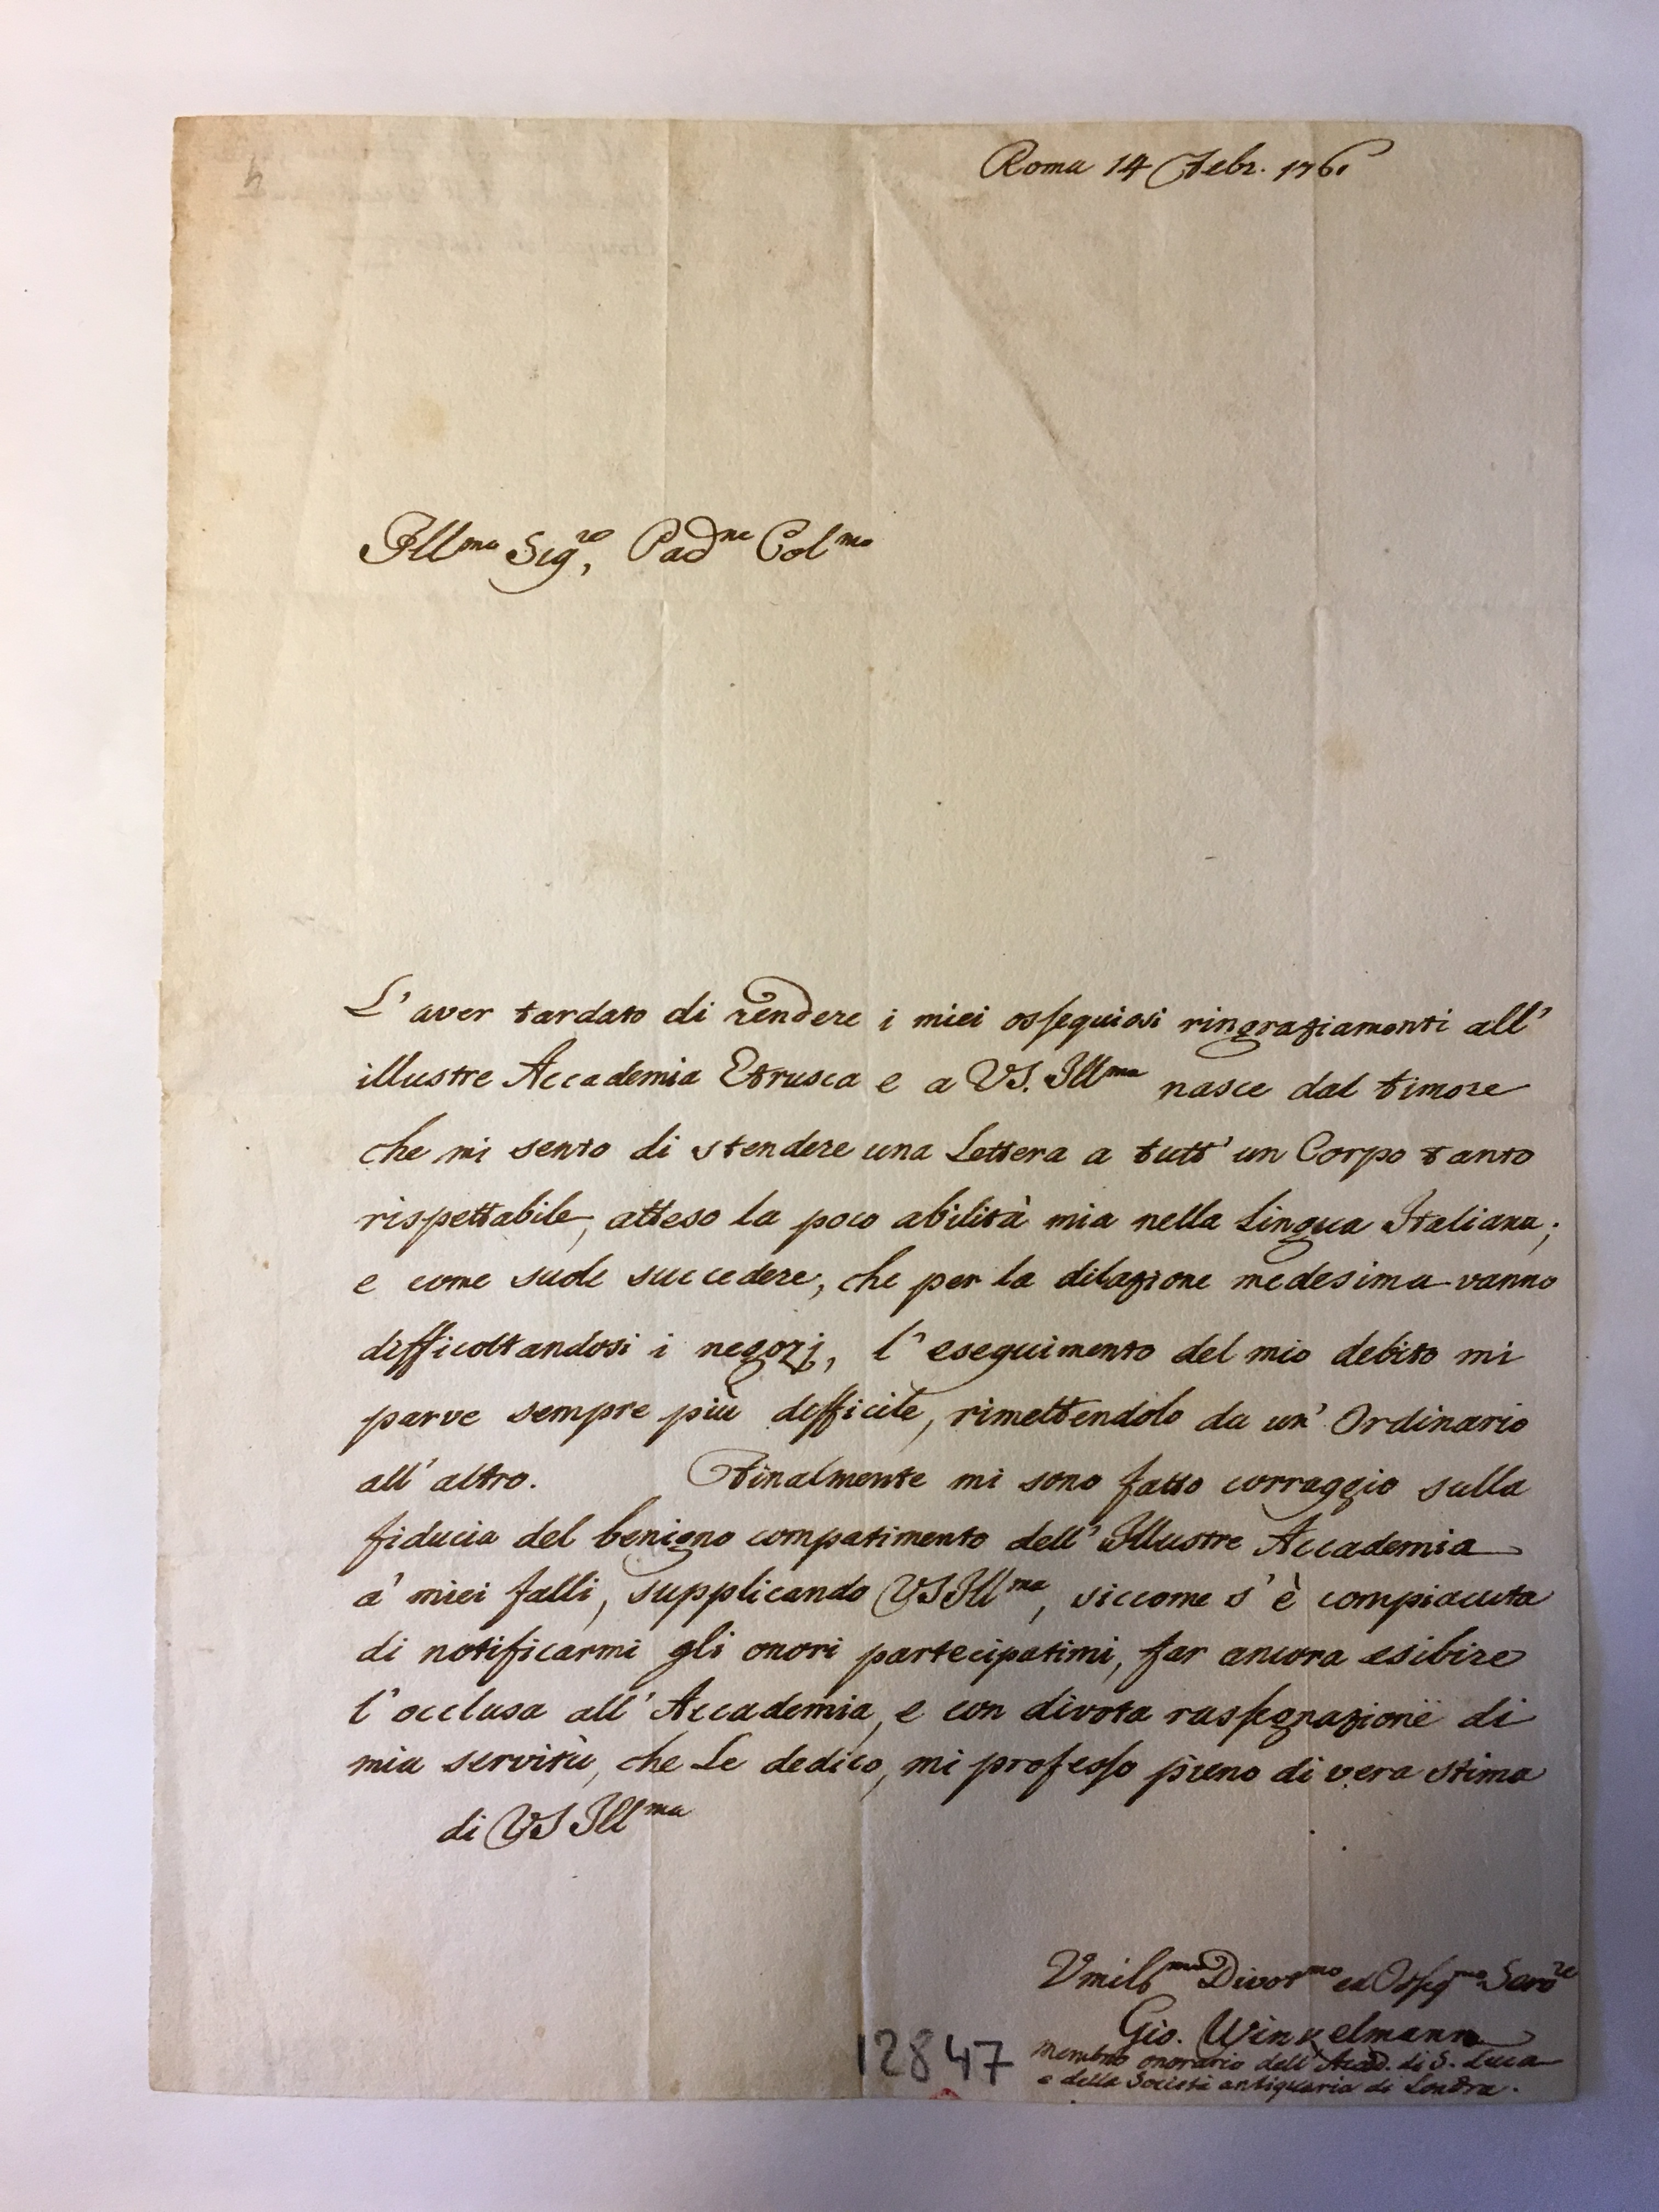 4
Roma 14 Febr. 1761
Illmo Sigre Padne Colmo
L'aver tardato di rendere i miei ossequiosi ringraziamenti all'
illustre Accademia Etrusca e a VS. Illma nasce dal timore
che mi sento di stendere una Lettera a tutt'un Corpo tanto
rispettabile, atteso la poco abilità mia nella lingua Italiana;
e come suol succedere, che per la dilazione medesima vanno
difficoltandosi i negozi, l'eseguimento del mio debito mi
parve sempre più difficile, rimettendolo da un'Ordinario
all'altro. Finalmente mi sono fatto corraggio sulla
fiducia del benigno compatimento dell'Illustre Accademia
a' miei falli, supplicando VS Illma, siccome s'è compiaciuta
di notificarmi gli onori partecipatimi, far ancora esibire
l'acclusa all'Accademia, e con divota rassegnazione di
mia servitù, che Le dedico, mi professo pieno di vera stima
di VS Illma
Umilsmo Divotmo ed Obblgmo Servre
Gio. Winckelmann
membro onorario dell'Accad. di S. Luca
e della Società antiquaria di Londra.
12847